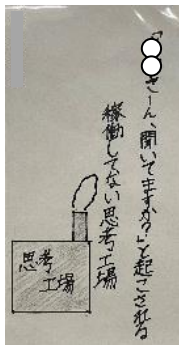 「○○さーん、聞いてますか?」と起こされる
稼働してない思考工場
思考
工場